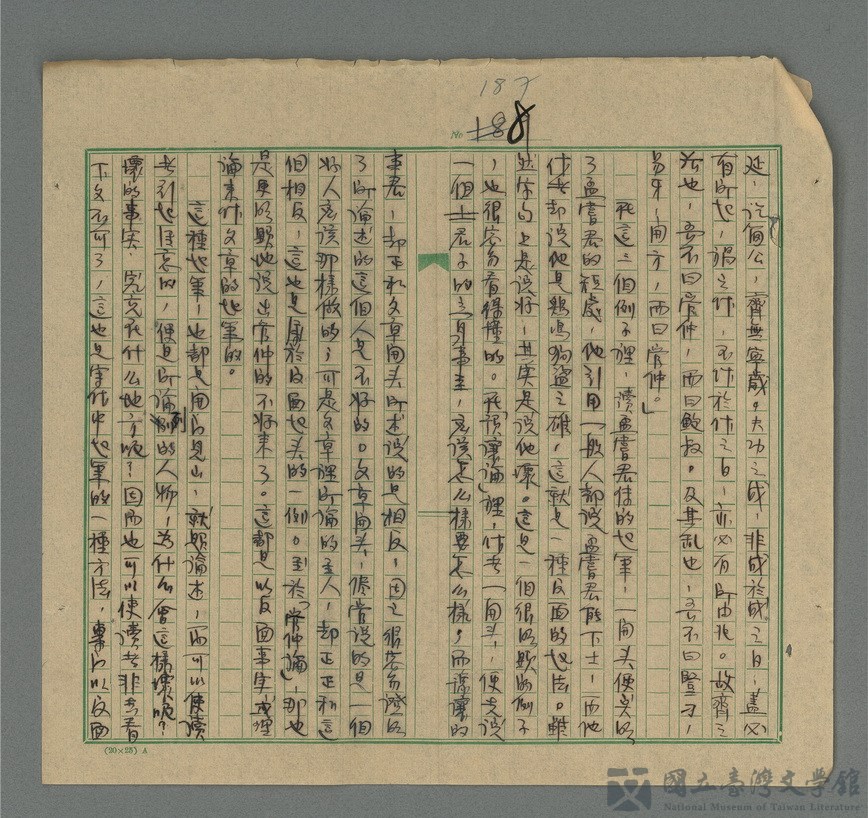 187
No
延，說簡公，齊無寧歲。夫功之成，非成於成之日，蓋必
有所起，禍之作，不作於作之日，亦必有所由兆。故齊之
治也，吾不曰管仲，而曰鮑叔。及其亂也，吾不曰豎刁，
易牙，開方，而曰管仲。」
在這三個例子裡，讀孟嘗君傳的起筆，一開头便
了孟嘗君的短處，他引用一般人都說孟嘗君能下士，而他
作者却說他是鷄鳴狗盜之雄，這就是一種反面的起法。雖
然字句上是說好，其实是說他壞。這是一個很明顯的例子
，也很容易看得懂的。在「諫論」裡，作者一開头，便先說
一個士君子的立身事主，應該怎么樣要怎么樣，而
事君，却正和文章開头所述說的是相反，因之很容易
了所論述的這個人是不好的。文章開头，儘管說的是一個
好人應該那樣做的；可是文章裡所論的主人，却正正和這
個相反，這也是屬於反面起头的一例。至於「管仲論」，那也
是更明顯地說出管仲的不好來了。這都是以反面事实或理
論來作文章的起筆的。
這種起筆，也都是開門見山，就題論述，而可以使讀
者引起注意的，便是所論列的人物，為什么會這樣壞呢？
壞的事实，究竟在什么地方呢？因而也可以使讀者非去看
下文不可了，這也是寫作中起筆的一種方法，專門以反面
(20×25) A
國立臺灣文學館
National Museum of Taiwan Literature